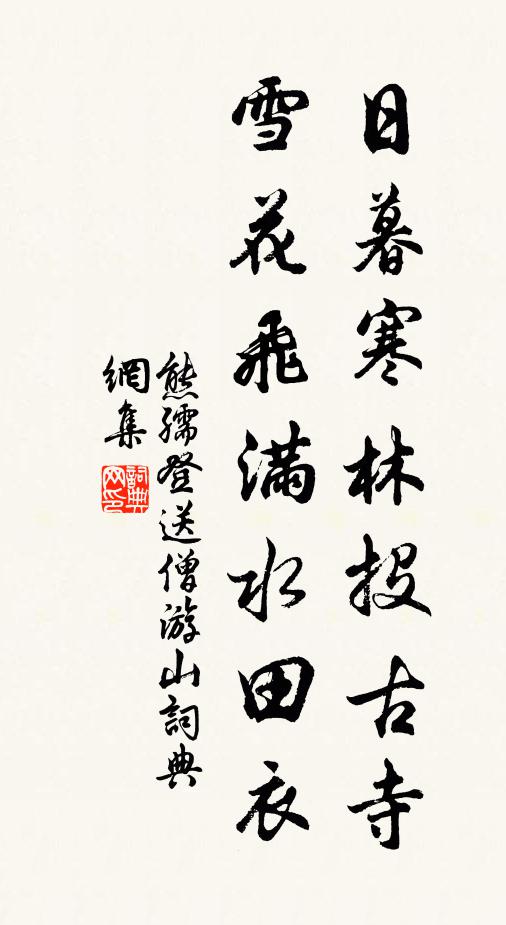 日暮寒林投古寺
雪花飛滿水田衣
熊孺登送僧游山詞典
網集
詞典網印